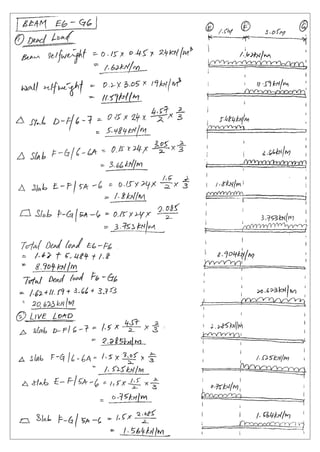 BEAM E6 - G6
① Dead Load
Beam selfweight = 0.15 x 0.45 x 24kN/m³
= 1.62kN/m
Wall selfweight = 0.2 x 3.05 x 19kN/m³
= 11.59kN/m
△ Slab D-F/6-7 = 0.15 x 24 x 4.57/2 x 2/3
= 5.484kN/m
△ Slab F-G/6-6A = 0.15 x 24 x 3.05/2 x 2/3
= 3.66kN/m
△ Slab E-F/5A-6 = 0.15x24x 1.5/2 x 2/3
= 1.8kN/m
Slab F-G/5A-6 = 0.15x24x 2.085/2
= 3.753kN/m
Total Dead load E6-F6
= 1.62 + 5.484 + 1.8
= 8.904kN/m
Total Dead load F6-G6
= 1.62 + 11.59 + 3.66 + 3.753
= 20.623kN/m
② LIVE LOAD
△ slab D-F/6-7 = 1.5 x 4.57/2 x 2/3
= 2.285kN/m
△ slab F-G/6-6A = 1.5 x 3.05/2 x 2/3
= 1.525kN/m
△ slab E-F/5A-6 = 1.5 x 1.5/2 x 2/3
= 0.75kN/m
Slab F-G/5A-6 = 1.5x 2.085/2
= 1.564kN/m
E F G
1.5M 3.05M
1.62kN/m
11.59kN/m
5.484kN/m
3.66kN/m
1.8kN/m
3.753kN/m
8.904kN/m
20.623kN/m
2.285kN/m
1.525kN/m
0.75kN/m
1.564kN/m